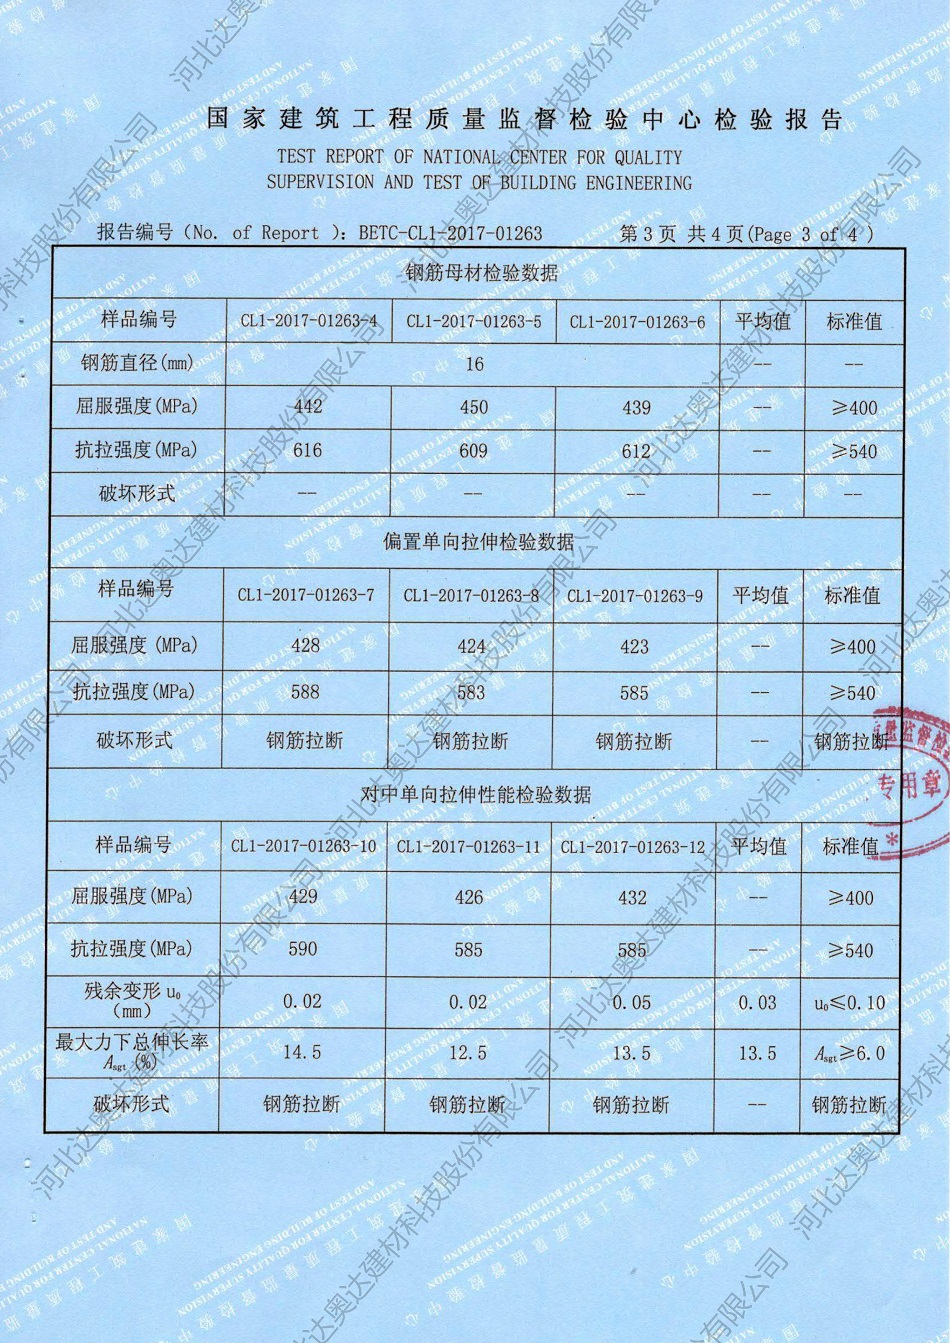 国家建筑工程质量监督检验中心检验报告
TEST REPORT OF NATIONAL CENTER FOR QUALITY
SUPERVISION AND TEST OF BUILDING ENGINEERING
报告编号（No. of Report ）: BETC-CL1-2017-01263 第 3 页 共 4 页(Page 3 of 4 )
钢筋母材检验数据
样品编号 CL1-2017-01263-4 CL1-2017-01263-5 CL1-2017-01263-6 平均值 标准值
钢筋直径(mm) 16 -- --
屈服强度(MPa) 442 450 439 -- ≥400
抗拉强度(MPa) 616 609 612 -- ≥540
破坏形式 -- -- -- -- --
偏置单向拉伸检验数据
样品编号 CL1-2017-01263-7 CL1-2017-01263-8 CL1-2017-01263-9 平均值 标准值
屈服强度 (MPa) 428 424 423 -- ≥400
抗拉强度(MPa) 588 583 585 -- ≥540
破坏形式 钢筋拉断 钢筋拉断 钢筋拉断 -- 钢筋拉断
对中单向拉伸性能检验数据
样品编号 CL1-2017-01263-10 CL1-2017-01263-11 CL1-2017-01263-12 平均值 标准值
屈服强度(MPa) 429 426 432 -- ≥400
抗拉强度(MPa) 590 585 585 -- ≥540
残余变形 u₀ 0.02 0.02 0.05 0.03 u₀≤0.10
（mm）
最大力下总伸长率 14.5 12.5 13.5 13.5 Asgt≥6.0
Asgt (%)
破坏形式 钢筋拉断 钢筋拉断 钢筋拉断 -- 钢筋拉断
监督检
专用章
河北达奥达建材科技股份有限公司